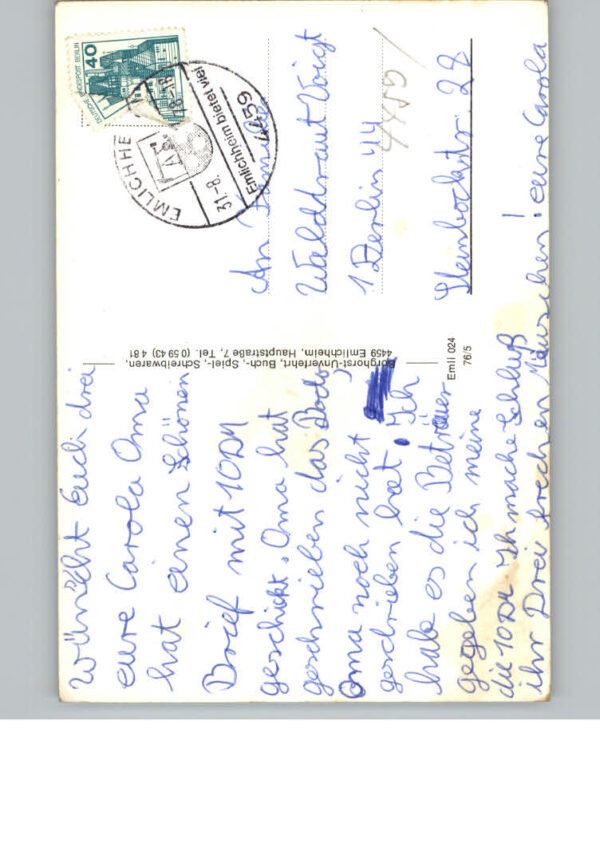 wünscht Euch drei
eure Carola Oma
hat einen schönen
Brief mit 10 DM
geschickt. Oma hat
geschrieben das Dodo
Oma noch nicht
geschrieben hat. Ich
habe es die Beträuer
gegeben ich meine
die 10 DM Ich mache Schluß
ihr Drei frechen Mäuschen! eure Carola
Borghorst-Unverfehrt, Buch-, Spiel-, Schreibwaren,
4459 Emlichheim, Hauptstraße 7, Tel. (0 59 43) 4 81
Emli 024
76/5
DEUTSCHE BUNDESPOST BERLIN
40
EMLICHHE
31.-8.
Emlichheim bietet viel
4459
An Familie
Walddraut Voigt
1 Berlin 44
4459
Steinbockstr 28